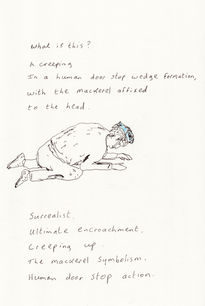 What is this?
A creeping
In a human door stop wedge formation,
with the mackerel affixed
to the head.
Surrealist.
Ultimate encroachment.
Creeping up.
The mackerel symbolism.
Human door stop action.